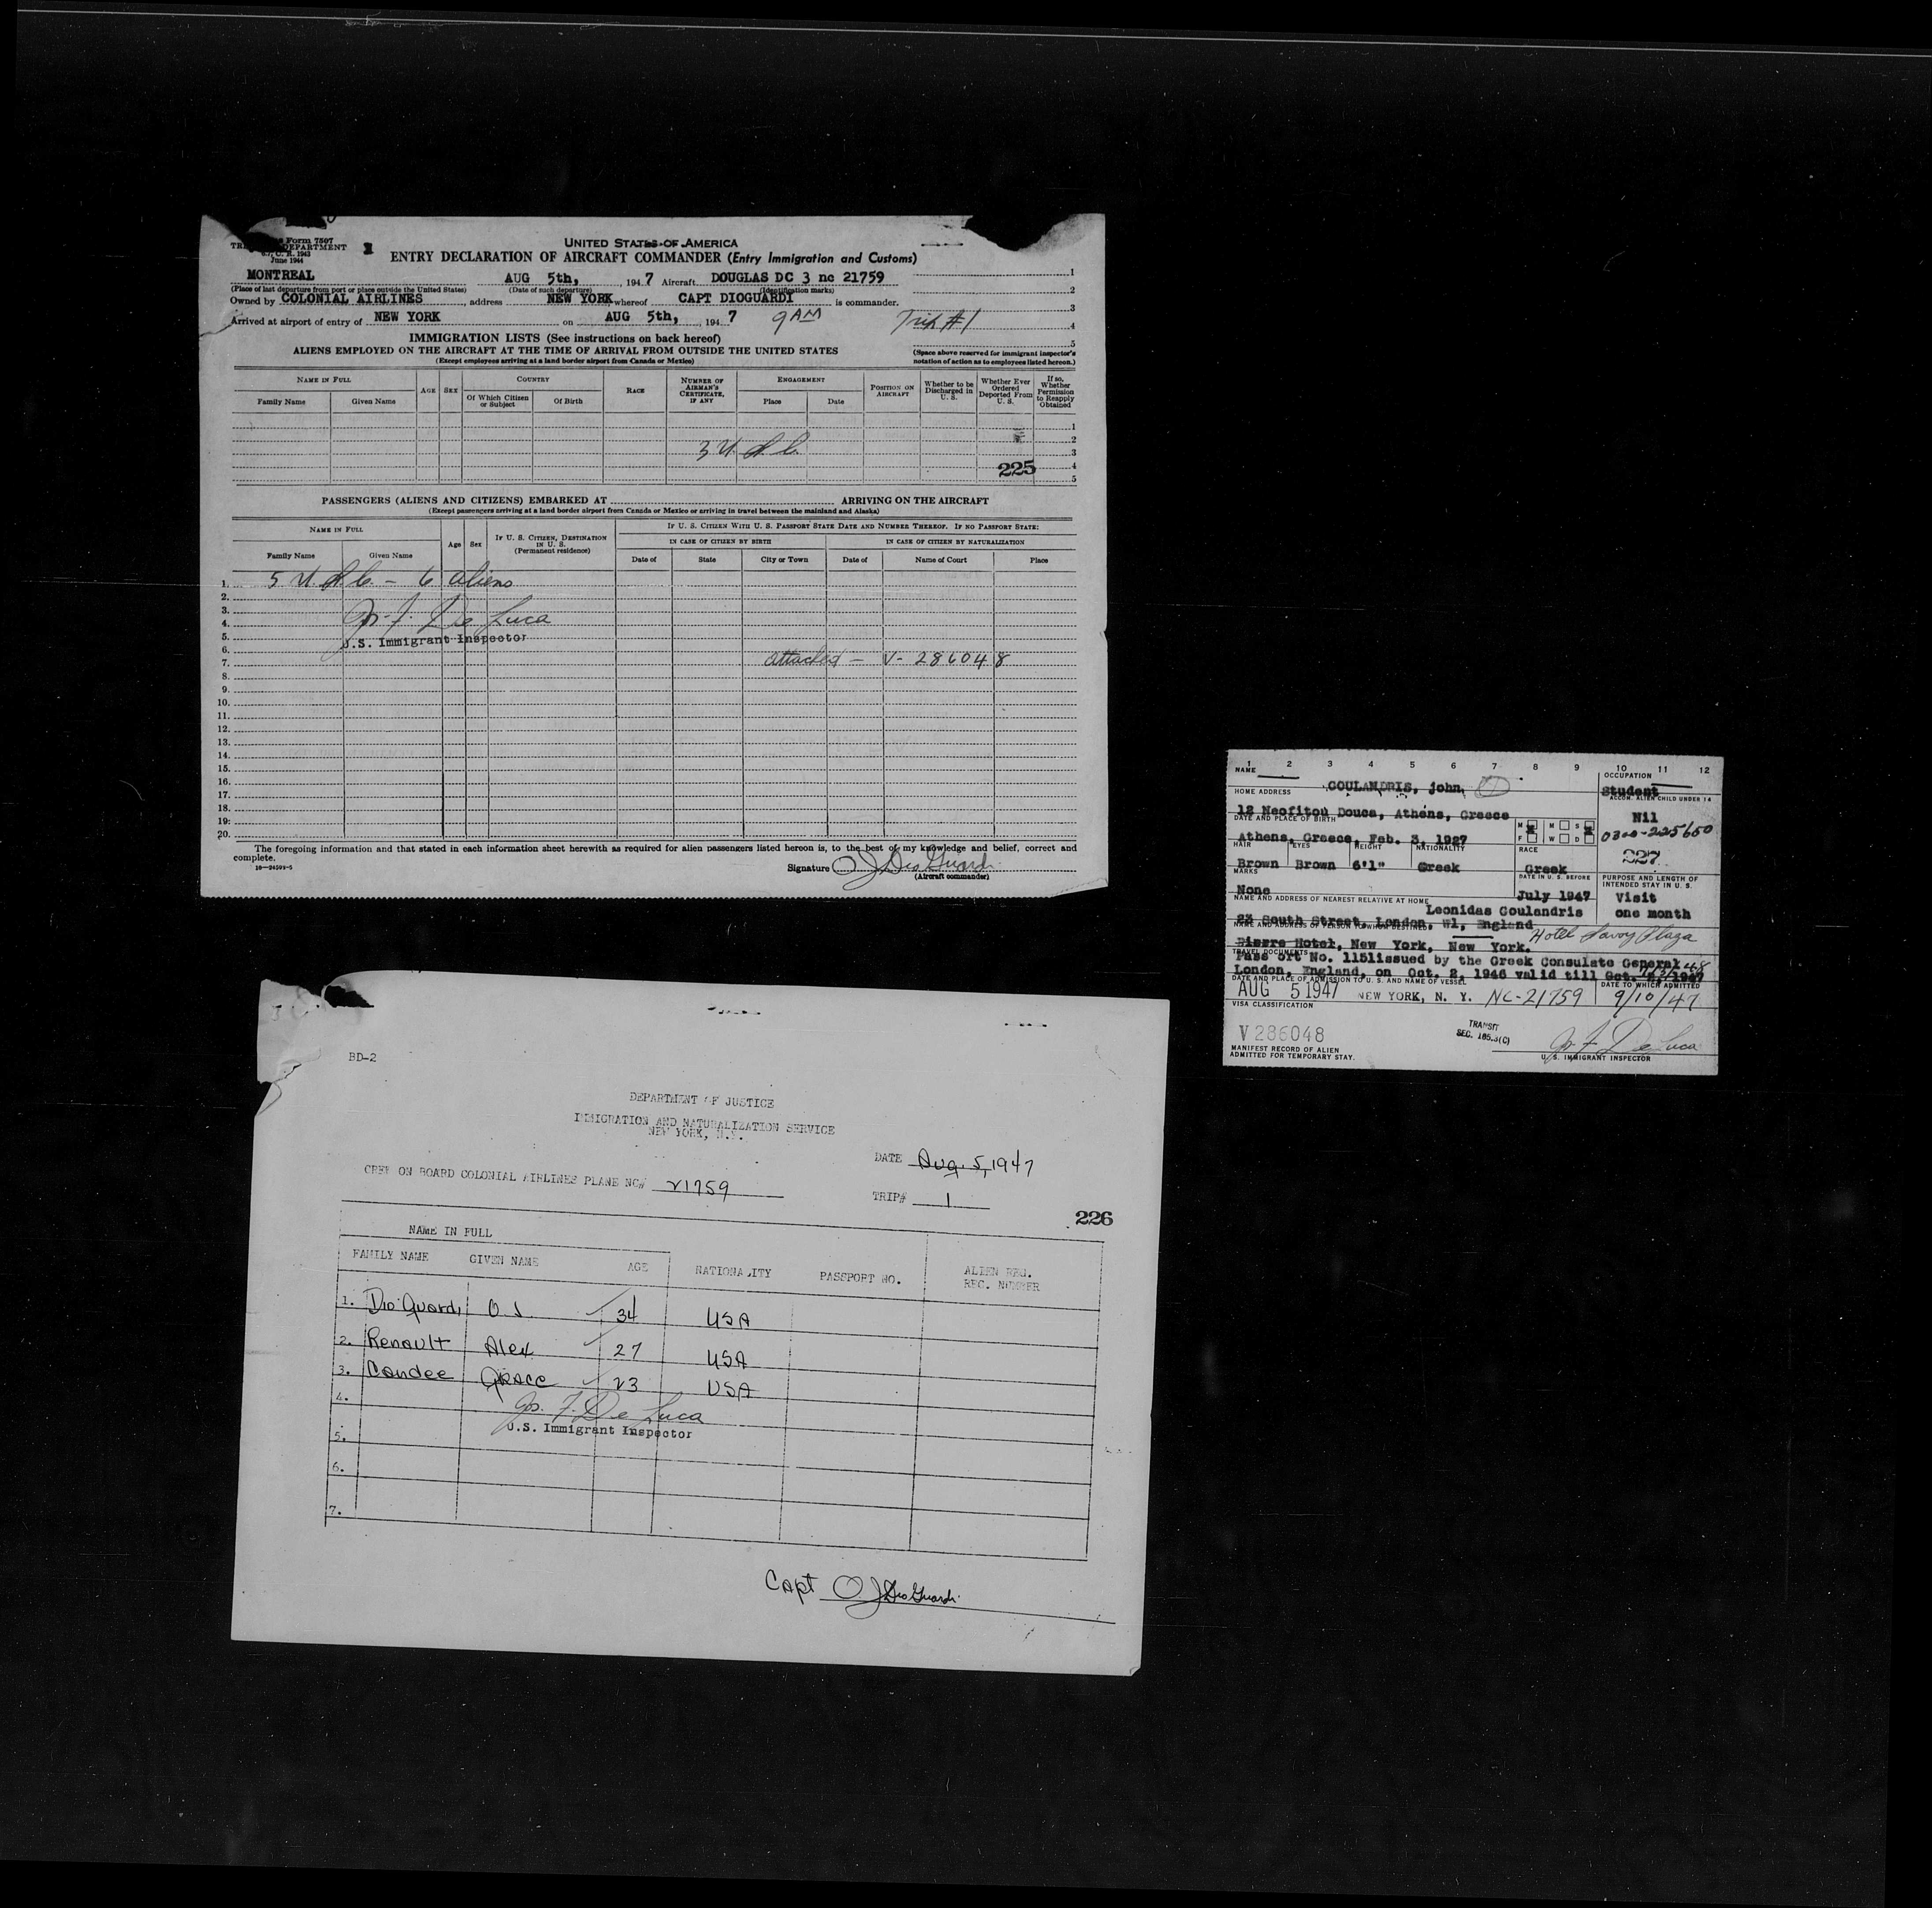 Form 7507
TREASURY DEPARTMENT
June 1944
UNITED STATES OF AMERICA
ENTRY DECLARATION OF AIRCRAFT COMMANDER (Entry Immigration and Customs)
MONTREAL AUG 5th, 1947 Aircraft DOUGLAS DC 3 nc 21759
(Place of last departure from port or place outside the United States) (Date of such departure) (Identification marks)
Owned by COLONIAL AIRLINES, address NEW YORK whereof CAPT DIOGUARDI is commander.
Arrived at airport of entry of NEW YORK on AUG 5th, 1947 9 AM Trip #1
1
2
3
4
5
(Space above reserved for immigrant inspector's notation of action as to employees listed hereon.)
IMMIGRATION LISTS (See instructions on back hereof)
ALIENS EMPLOYED ON THE AIRCRAFT AT THE TIME OF ARRIVAL FROM OUTSIDE THE UNITED STATES
(Except employees arriving at a land border airport from Canada or Mexico)
NAME IN FULL
Family Name Given Name
AGE SEX
COUNTRY
Of Which Citizen or Subject Of Birth
RACE
NUMBER OF AIRMAN'S CERTIFICATE, IF ANY
ENGAGEMENT
Place Date
POSITION ON AIRCRAFT
Whether to be Discharged in U. S.
Whether Ever Ordered Deported From U. S.
If so, Whether Permission to Reapply Obtained
1
2
3 U. S. C. 3
225 4
5
PASSENGERS (ALIENS AND CITIZENS) EMBARKED AT ARRIVING ON THE AIRCRAFT
(Except passengers arriving at a land border airport from Canada or Mexico or arriving in travel between the mainland and Alaska)
NAME IN FULL
Family Name Given Name
Age Sex
IF U. S. CITIZEN, DESTINATION IN U. S. (Permanent residence)
IF U. S. CITIZEN WITH U. S. PASSPORT STATE DATE AND NUMBER THEREOF. IF NO PASSPORT STATE:
IN CASE OF CITIZEN BY BIRTH IN CASE OF CITIZEN BY NATURALIZATION
Date of State City or Town Date of Name of Court Place
1. 5 U. S. C. - 6 aliens
2.
3.
4. Jos. F. De Luca
5. U.S. Immigrant Inspector
6.
7. attached - V-286048
8.
9.
10.
11.
12.
13.
14.
15.
16.
17.
18.
19.
20.
The foregoing information and that stated in each information sheet herewith as required for alien passengers listed hereon is, to the best of my knowledge and belief, correct and
complete.
16-24599-5
Signature O J DioGuardi
(Aircraft commander)
1 2 3 4 5 6 7 8 9 10 11 12
NAME
GOULANDRIS, john
OCCUPATION
Student
HOME ADDRESS
ACCOM. ALIEN CHILD UNDER 14
12 Neofitou Douca, Athens, Greece
Nil
DATE AND PLACE OF BIRTH
M M S
F W D
0300-225650
Athens, Greece, Feb. 3, 1927
227
HAIR EYES HEIGHT NATIONALITY RACE
Brown Brown 6'1" Greek Greek
MARKS DATE IN U. S. BEFORE PURPOSE AND LENGTH OF INTENDED STAY IN U. S.
None July 1947 Visit
one month
NAME AND ADDRESS OF NEAREST RELATIVE AT HOME
Leonidas Goulandris
23 South Street, London, W1, England
NAME AND ADDRESS OF PERSON TO WHOM DESTINED
Hotel Savoy Plaza
Pierre Hotel, New York, New York.
TRAVEL DOCUMENTS
Pass ort No. 1151issued by the Greek Consulate General
London, England, on Oct. 2, 1946 valid till Oct. 2, 1947
DATE AND PLACE OF ADMISSION TO U. S. AND NAME OF VESSEL DATE TO WHICH ADMITTED
AUG 5 1947 NEW YORK, N. Y. NC-21759 9/10/47
VISA CLASSIFICATION
V 286048
TRANSIT
SEC. 165.3(C)
Jos F De Luca
U. S. IMMIGRANT INSPECTOR
MANIFEST RECORD OF ALIEN
ADMITTED FOR TEMPORARY STAY.
BD-2
DEPARTMENT OF JUSTICE
IMMIGRATION AND NATURALIZATION SERVICE
NEW YORK, N.Y.
DATE Aug. 5, 1947
CREW ON BOARD COLONIAL AIRLINES PLANE NC# 21759
TRIP# 1
226
NAME IN FULL
FAMILY NAME GIVEN NAME AGE NATIONALITY PASSPORT NO. ALIEN REG. REC. NUMBER
1. DioGuardi O.J. 34 USA
2. Renault Alex 27 USA
3. Candee GRACE 23 USA
4. Jos. F. De Luca
U.S. Immigrant Inspector
5.
6.
7.
Capt O J DioGuardi